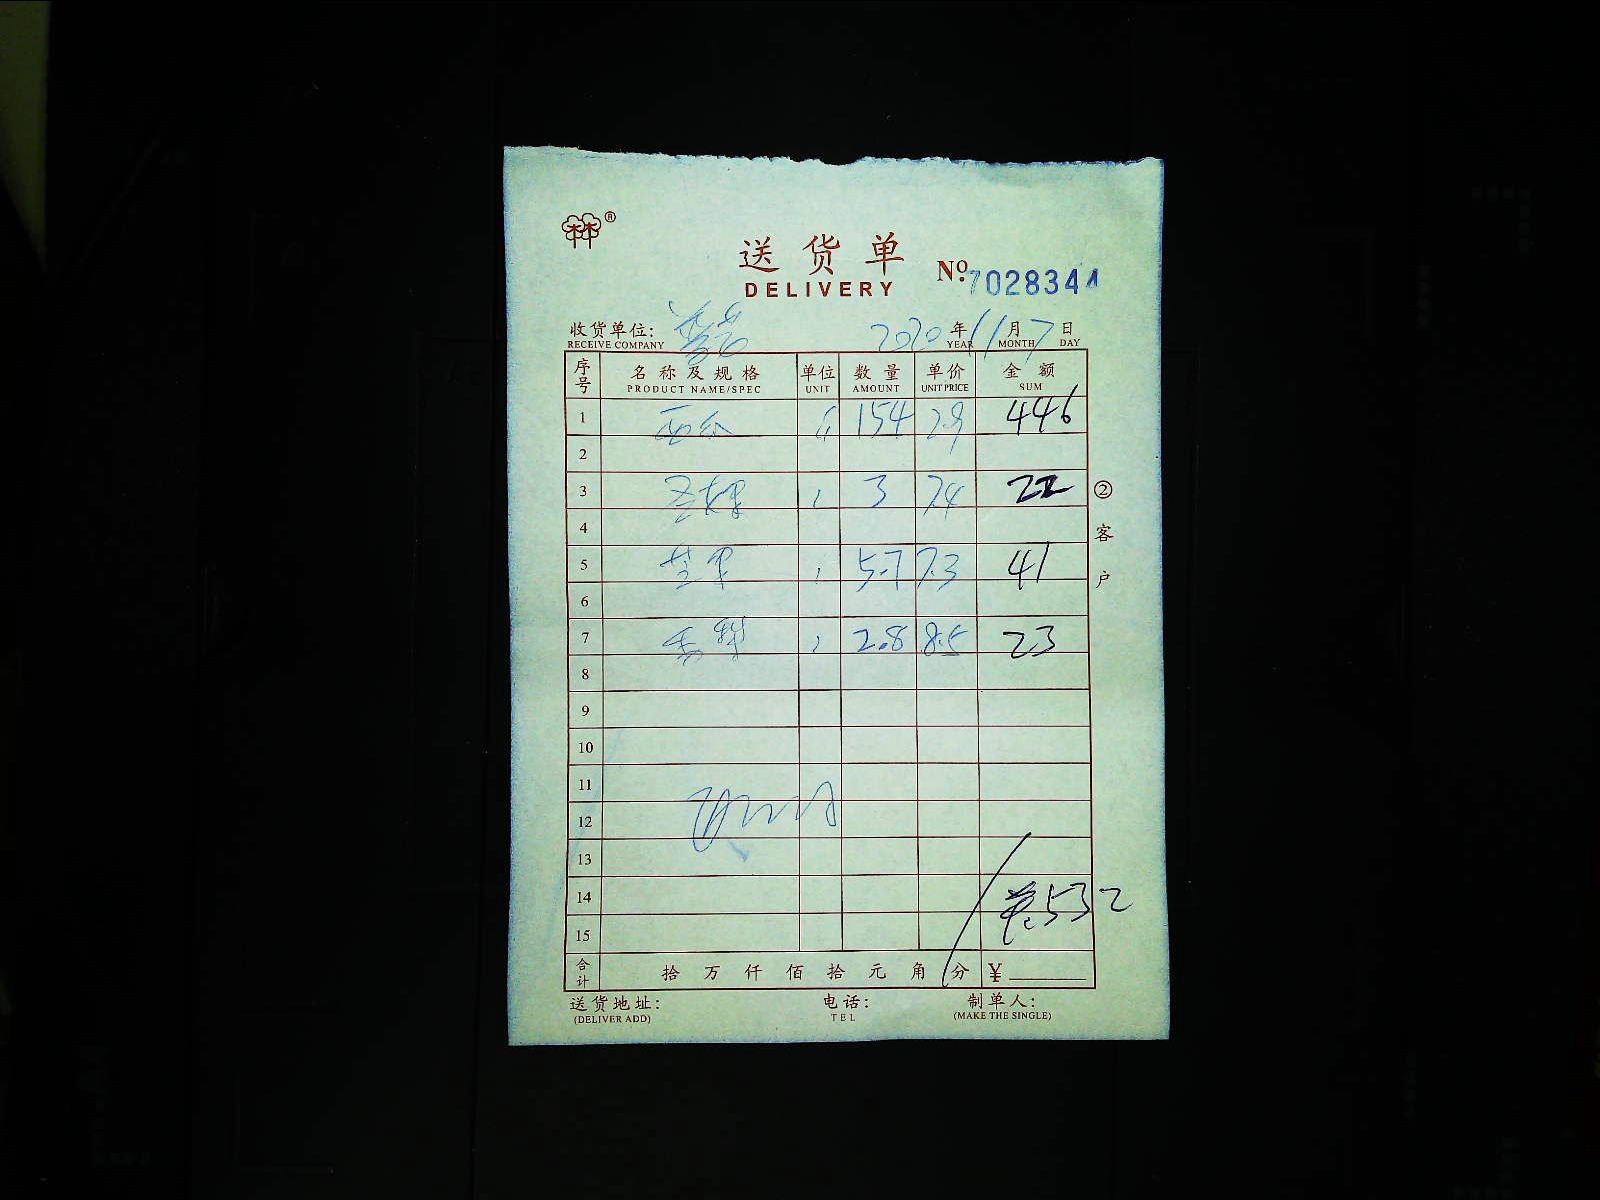 林®
送货单
DELIVERY
No. 7028344
收货单位:
RECEIVE COMPANY
2020 年 11 月 7 日
YEAR MONTH DAY
序号 名称及规格 单位 数量 单价 金额
PRODUCT NAME/SPEC UNIT AMOUNT UNIT PRICE SUM
1 154 2.9 446
2
3 3 7.4 22
4
5 5.7 7.3 41
6
7 2.8 8.5 23
8
9
10
11
12
13
14 532
15
合计 拾 万 仟 佰 拾 元 角 分 ¥
② 客户
送货地址: 电话: 制单人:
(DELIVER ADD) TEL (MAKE THE SINGLE)